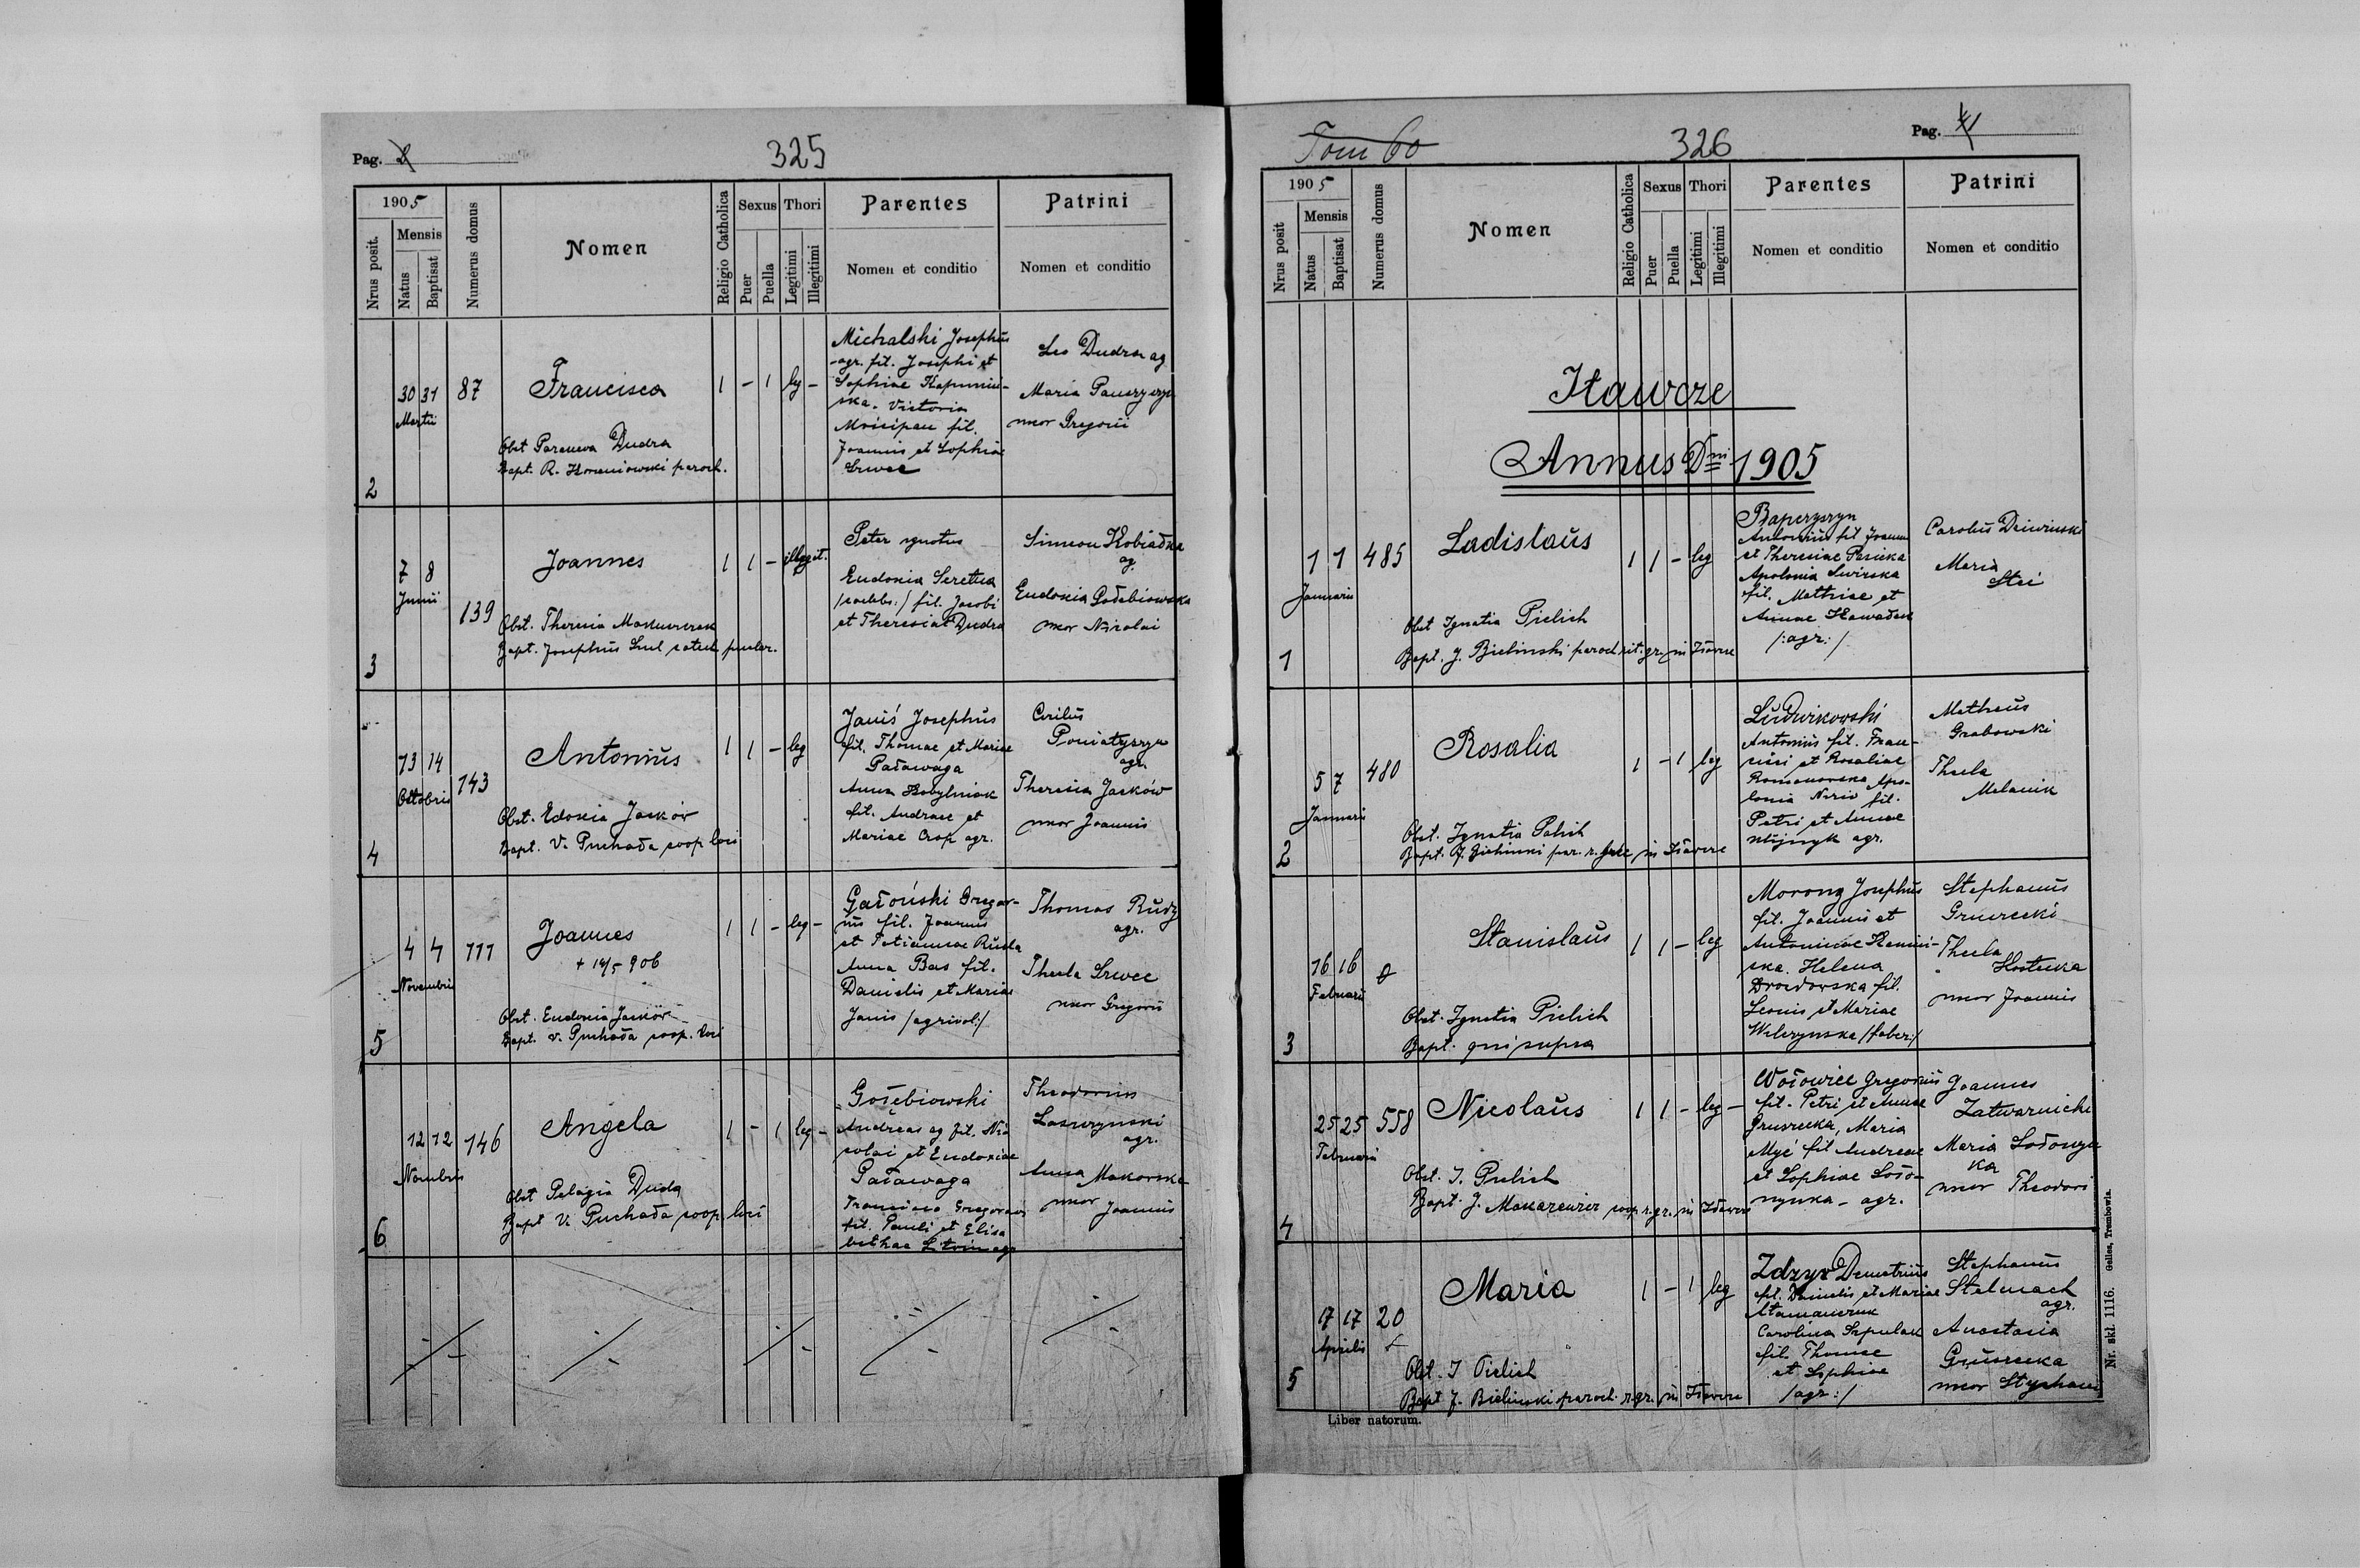 Pag. 2
325
1905
Nrus posit.
Mensis
Natus
Baptisat
Numerus domus
Nomen
Religio Catholica
Sexus
Puer
Puella
Thori
Legitimi
Illegitimi
Parentes
Nomen et conditio
Patrini
Nomen et conditio
2
30 31
Martii
87
Francisca
Obst Dudra
Bapt. R. paroch.
1 - 1 leg -
Michalski Josephus
agr. fil. Josephi et
Sophiae
ska. Victoria
fil.
Joannis et Sophiae
Leo Dudra ag
Maria
uxor Gregorii
3
7 8
Junii
139
Joannes
Obst. Theresia
Bapt. Josephus
1 1 - illegit.
Pater ignotus
Eudoxia Seretna
/coelebs:/ fil. Jacobi
et Theresiae Dudra
Simeon Kobiałka
ag.
Eudoxia Gołębiowska
uxor Nicolai
4
13 14
Octobris
143
Antonius
Obst. Edoxia Jacków
Bapt. V. Puchała coop loci
1 1 - leg
Janiś Josephus
fil. Thomae et Mariae
Paławaga
Anna Kobylniak
fil. Andreae et
Mariae Crop agr.
Cirilus
Poniatyszyn
agr.
Theresia Jacków
uxor Joannis
5
4 4
Novembris
111
Joannes
+ 14/5 906
Obst. Eudoxia Jacków
Bapt. V. Puchała coop. loci
1 1 - leg -
Gałoński Gregor-
ius fil. Joannis
et Tatiannae Ruda
Anna Bas fil.
Danielis et Mariae
Janis /agricol:/
Thomas Rudy
agr.
Thecla
uxor Gregorii
6
12 12
Novembris
146
Angela
Obst Pelagia Duda
Bapt V. Puchała coop. loci
1 - 1 leg -
Gołębiowski
Andreas ag fil. Ni
colai et Eudoxiae
Paławaga
Francisca
fil. Pauli et Elisa
bethae
Theodorus
agr.
Anna Makorska
uxor Joannis
Tom 60
326
Pag.
1905
Nrus posit
Mensis
Natus
Baptisat
Numerus domus
Nomen
Religio Catholica
Sexus
Puer
Puella
Thori
Legitimi
Illegitimi
Parentes
Nomen et conditio
Patrini
Nomen et conditio
Iławcze
Annus Dni 1905
1
1 1
Januarii
485
Ladislaus
Obst Ignatia Pielich
Bapt. J. Bielinski paroch rit. gr. in Iławcze
1 1 - leg
Antonius fil Joannis
et Theresiae Pasieka
Apolonia Swirska
fil. Mathiae et
Annae
/:agr:/
Carolus
Maria
2
5 7
Januarii
480
Rosalia
Obst. Ignatia
Bapt. J. Bielinski par. r. in Iławcze
1 - 1 leg
Ludwikowski
Antonius fil. Fran-
cisci et Rosaliae
Romanowska Apo-
lonia fil.
Petri et Annae
agr.
Matheus
Grabowski
Thecla
Melanik
3
16 16
Februarii
Stanislaus
Obst. Ignatia Pielich
Bapt. qui supra
1 1 - leg
Morong Josephus
fil. Joannis et
Antoninae
ska. Helena
Drozdowska fil.
Leonis et Mariae
Wilczynska /faber:/
Stephanus
Gruszecki
Thecla
uxor Joannis
4
25 25
Februarii
558
Nicolaus
Obst. I. Pielich
Bapt. J. Makarewicz coop. r. gr. in Iławcze
1 1 - leg -
Wołowiec Gregorius
fil. Petri et Annae
Gruszecka, Maria
fil Andreae
et Sophiae
agr.
Joannes
Maria
ka
uxor Theodori
5
17 17
Aprilis
20
Maria
Obst. I Pielich
Bapt J. Bielinski paroch. r. gr. in Iławcze
1 - 1 leg
Demetrius
fil. Danielis et Mariae
Carolina Szpulak
fil. Thomae
et Sophiae
/agr:/
Stephanus
Stelmach
agr.
Anastasia
Gruszecka
uxor Stephani
Liber natorum.
Nr. skl. 1116. Gelles, Trembowla.